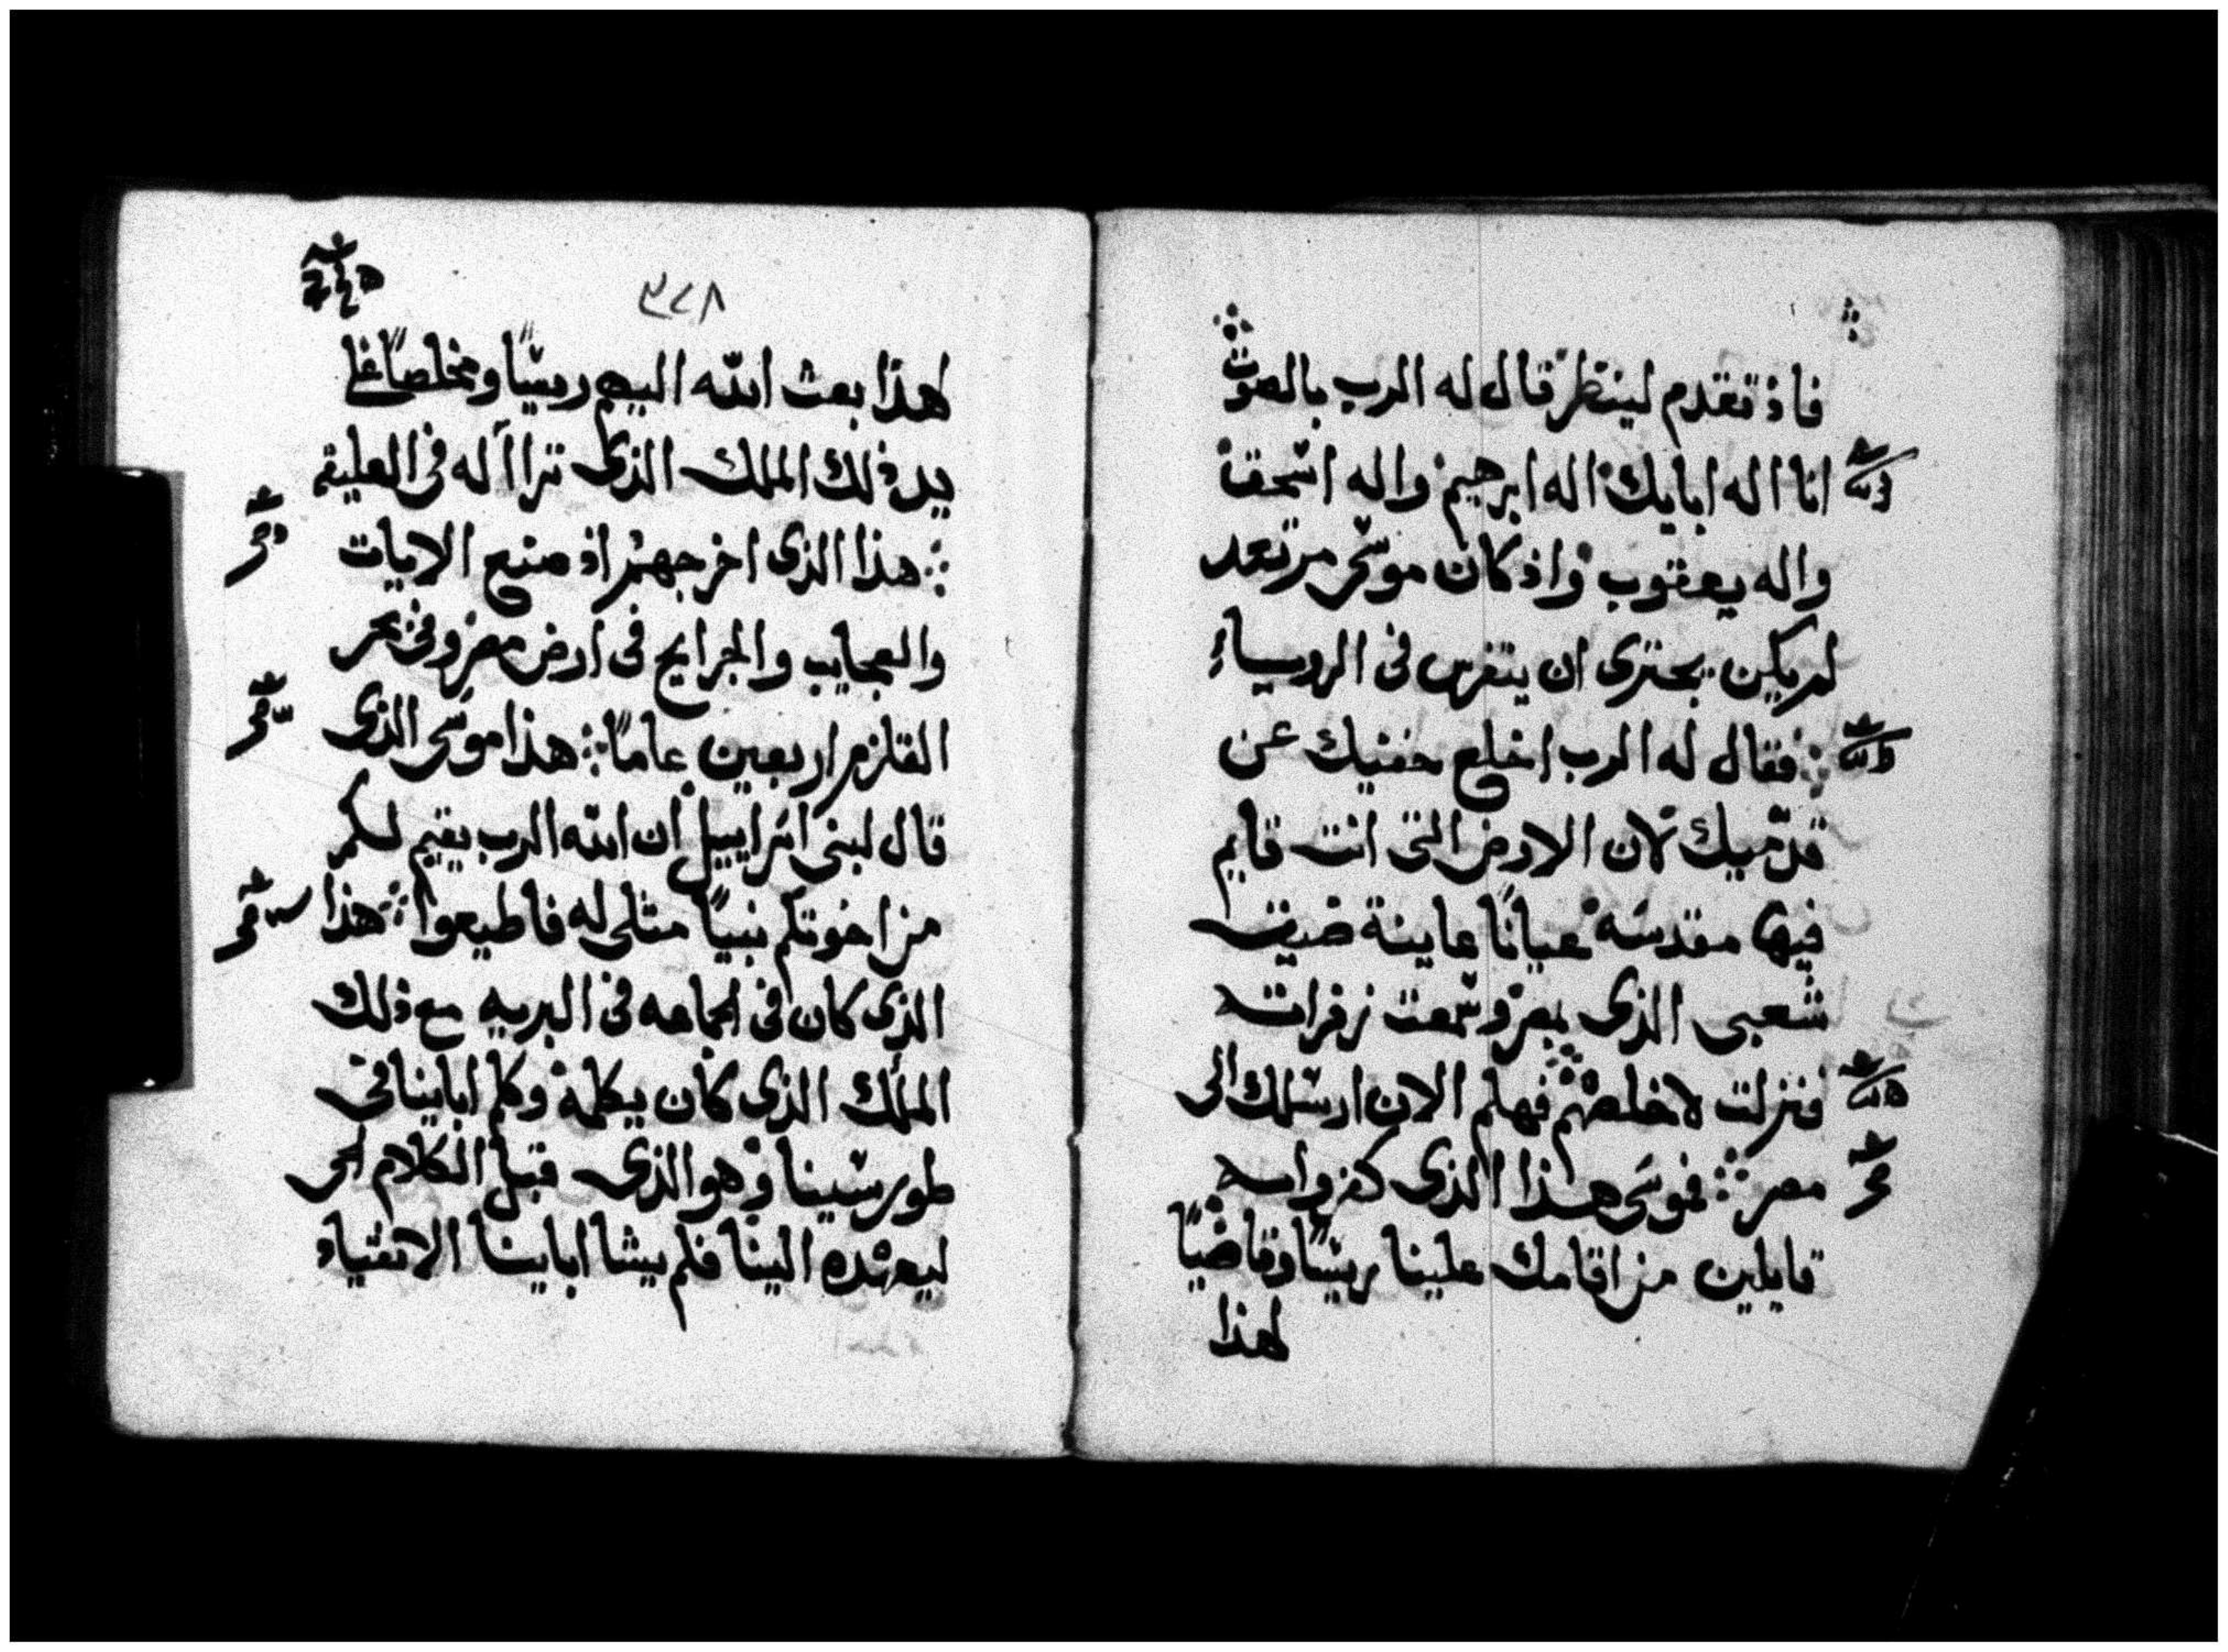 فاذ تقدم لينظر قال له الرب بالصوت
انا اله ابايك اله ابرهيم واله اسحق
واله يعقوب واذ كان موسى مرتعد
لم يكن يجترى ان يتفرس فى الروياء
فقال له الرب اخلع خفيك عن
قدميك لان الارض التى انت قايم
فيها مقدسه عيانًا عاينة ضيق
شعبى الذى بمصر وسمعت زفراته
فنزلت لاخلصهم فهلم الان ارسلك الى
مصر فموسى هذا الذى كفروا به
قايلين من اقامك علينا ريسًا وقاضيًا
لهذا
٣٤٨
لهذا بعث الله اليهم ريسًا ومخلصًا على
يد ذلك الملك الذى تراا له فى العليقه
هذا الذى اخرجهم اذ صنع الايات
والعجايب والجرايح فى ارض مصر وفى بحر
القلزم اربعين عامًا هذا موسى الذى
قال لبنى اسراييل ان الله الرب يقيم لكم
من اخوتكم نبيًا مثلى له فاطيعوا هذا
الذى كان فى الجماعه فى البريه مع ذلك
الملك الذى كان يكلمه وكلم اباينا فى
طور سينا وهو الذى قبل الكلام الحى
ليعهده الينا فلم يشا اباينا الاتقياء